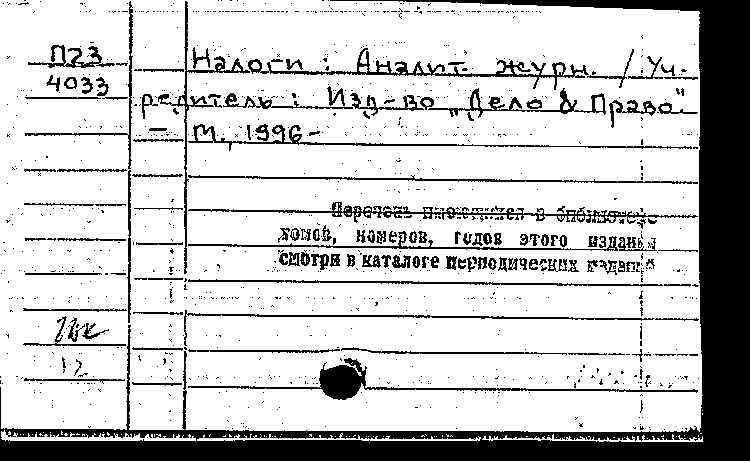 П23
4033
Налоги : Аналит. журн. / Уч-
редитель : Изд-во „Дело & Право".
— М., 1996-
Перечень имеющихся в библиотеке
томов, номеров, годов этого издания
смотри в каталоге периодических изданий
12